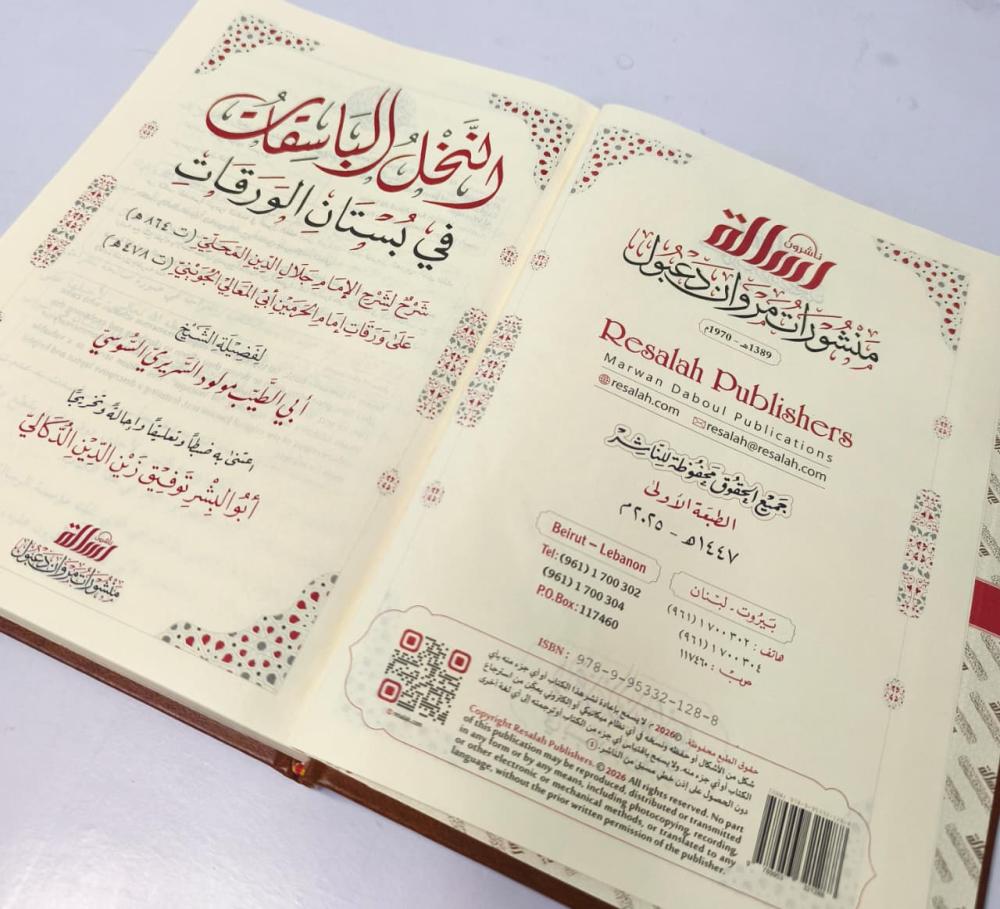 النَّخْلُ البَاسِقَاتُ
في بُسْتَانِ الوَرَقَاتِ
شَرْحٌ لِشَرْحِ الإِمَامِ جَلَالِ الدِّينِ المَحَلِّيِّ (ت ٨٦٤ هـ)
عَلَى وَرَقَاتِ إِمَامِ الحَرَمَيْنِ أَبِي المَعَالِي الجُوَيْنِيِّ (ت ٤٧٨ هـ)
لِفَضِيلَةِ الشَّيْخِ
أَبِي الطَّيِّبِ مَوْلُود السَّرِيرِي السُّوسِي
اعتنى به ضبطًا وتعليقًا وإحالةً وتخريجًا
أَبُو البِشْرِ تَوْفِيق زَيْنُ الدِّينِ الدُّكَالِي
رسالة ناشرون
منشورات مروان دعبول
رسالة ناشرون
منشورات مروان دعبول
1389هـ - 1970م
Resalah Publishers
Marwan Daboul Publications
resalah.com resalah@resalah.com
جميع الحقوق محفوظة للناشر
الطبعة الأولى
١٤٤٧هـ - ٢٠٢٥م
Beirut – Lebanon
Tel: (961) 1 700 302
(961) 1 700 304
P.O.Box: 117460
بيروت - لبنان
هاتف: ٧٠٠٣٠٢ ١ (٩٦١)
٧٠٠٣٠٤ ١ (٩٦١)
ص.ب: ١١٧٤٦٠
ISBN: 978-9-95332-128-8
resalah.com
حقوق الطبع محفوظة ©2026م. لا يسمح بإعادة نشر هذا الكتاب أو أي جزء منه بأي
شكل من الأشكال أو حفظه ونسخه في أي نظام ميكانيكي أو إلكتروني يمكن من استرجاع
الكتاب أو أي جزء منه. ولا يسمح باقتباس أي جزء من الكتاب أو ترجمته إلى أي لغة أخرى
دون الحصول على إذن خطي مسبق من الناشر.
Copyright Resalah Publishers. © 2026 All rights reserved. No part
of this publication may be reproduced, distributed or transmitted
in any form or by any means, including photocopying, recording,
or other electronic or mechanical methods, or translated to any
language, without the prior written permission of the publisher.